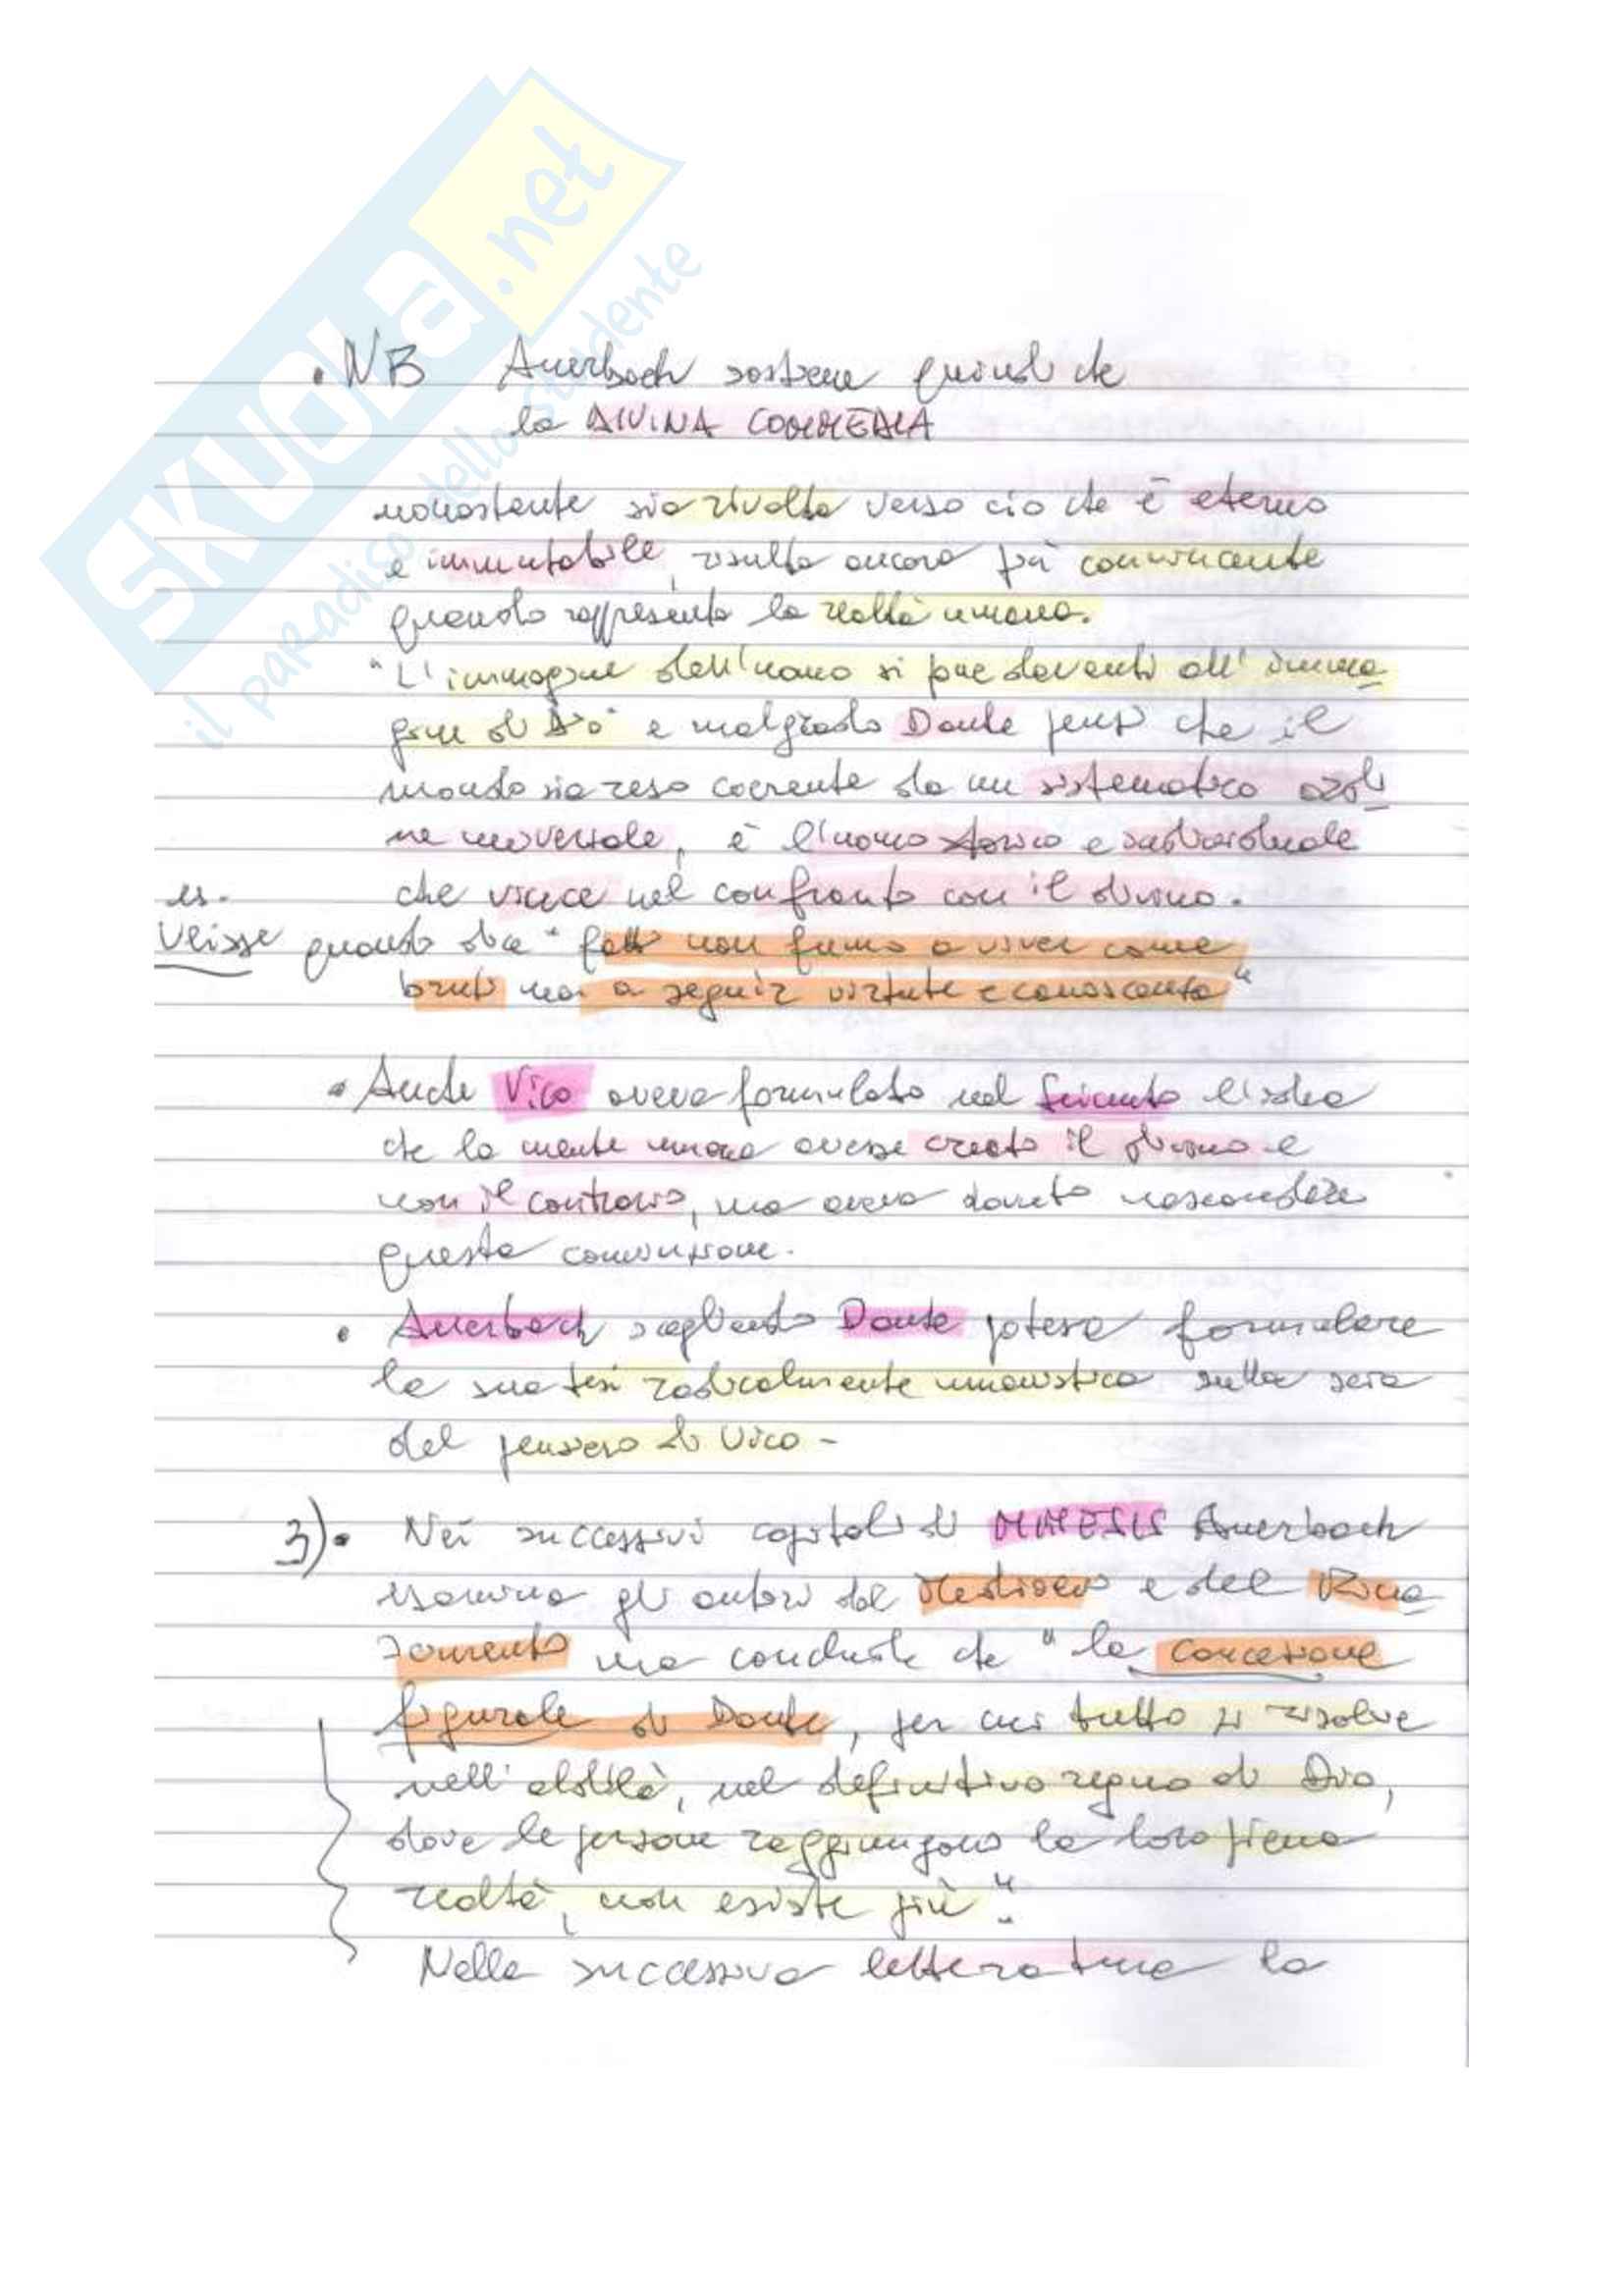 SKUOLA.net
il paradiso dello studente
• NB Auerbach sostiene quindi che
la DIVINA COMMEDIA
nonostante sia rivolta verso ciò che è eterno
e immutabile, risulta ancora più convincente
quando rappresenta la realtà umana.
"L'immagine dell'uomo si pone davanti all'imma
gine di Dio" e malgrado Dante pensi che il
mondo sia reso coerente da un sistematico ordi
ne universale, è l'uomo storico e individuale
es. che vince nel confronto con il divino.
Ulisse quando dice "fatti non fumo a viver come
bruti ma a seguir virtute e conoscenza"
• Anche Vico aveva formulato nel Seicento l'idea
che la mente umana avesse creato il divino e
non il contrario, ma aveva dovuto nascondere
questa convinzione.
• Auerbach scegliendo Dante poteva formulare
la sua tesi radicalmente umanistica sulla scia
del pensiero di Vico -
3) • Nei successivi capitoli di MIMESIS Auerbach
esamina gli autori del Medioevo e del Rina
scimento ma conclude che "la concezione
figurale di Dante, per cui tutto si risolve
nell'aldilà, nel definitivo regno di Dio,
dove le persone raggiungono la loro piena
realtà, non esiste più".
Nella successiva letteratura la